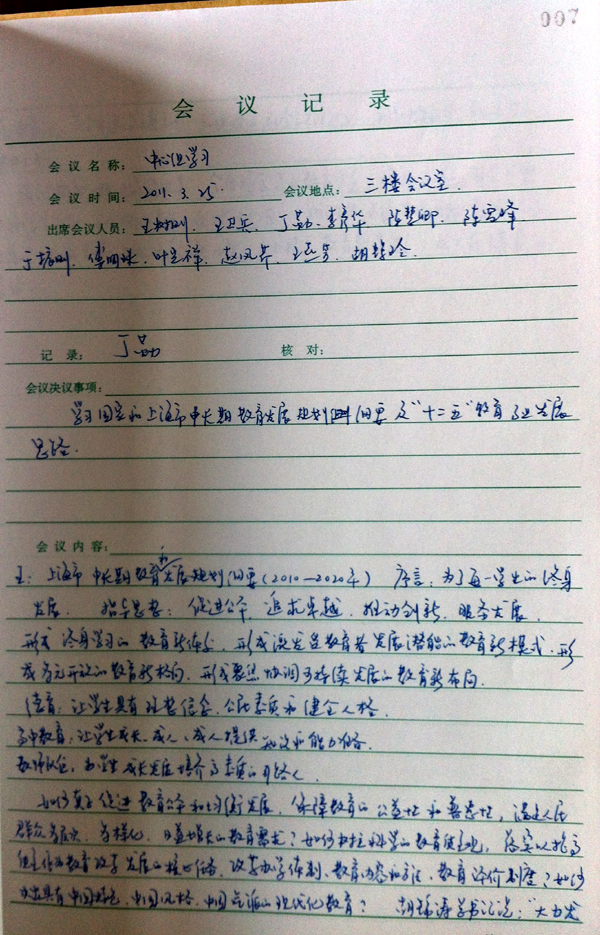 007
会议记录
会议名称： 中心组学习
会议时间： 2011.3.25. 会议地点： 三楼会议室.
出席会议人员： 王卫兵、丁勤、李彦华 陈慧卿、陈雪峰
叶呈祥、赵凤芹、
记录： 丁勤 核对：
会议决议事项：
学习国家和上海市中长期教育发展规划纲要及“十二五”教育 发展
思路.
会议内容：
王：上海市中长期教育改发展规划纲要（2010—2020年） 序言：为了每一学生的终身
发展. 指导思想：促进公平、追求卓越、推动创新、服务发展.
形成终身学习的教育新体系、形成激发受教育者发展潜能的教育新模式、形
成多元开放的教育新格局、形成聚焦协调可持续发展的教育新布局.
德育：让学生具有理想信念、公民素质和健全人格.
高中教育：让学生成长、成人、成人提供知识和能力储备.
为学生成长发展培养高素质的引路人
如何真正促进教育公平和均衡发展，保障教育的公益性和普惠性，满足人民
群众多层次、多样化、日益增长的教育需求？如何树立科学的教育质量观，落实以提高
教育改革发展的核心任务，改革办学体制、教育内容和方法、教育评价制度？如何
办出具有中国特色、中国风格、中国气派的现代化教育？ 胡锦涛学书记说：“大力发